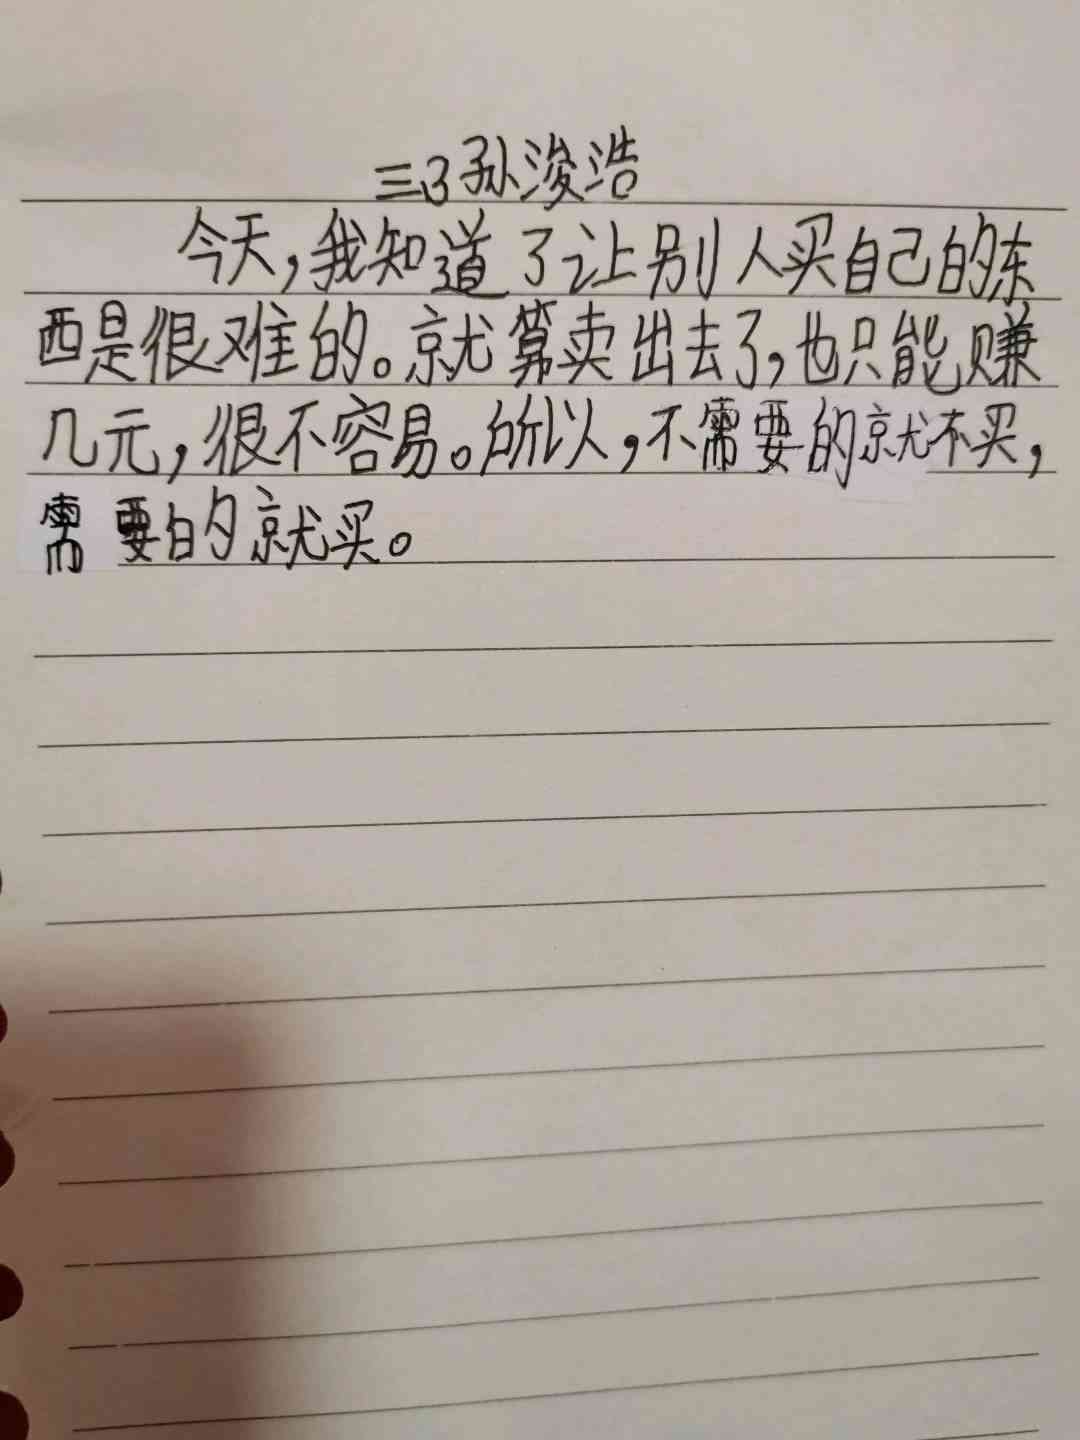 三3孙浚浩
今天,我知道了让别人买自己的东
西是很难的。就算卖出去了,也只能赚
几元,很不容易。所以,不需要的就不买,
需要的就买。